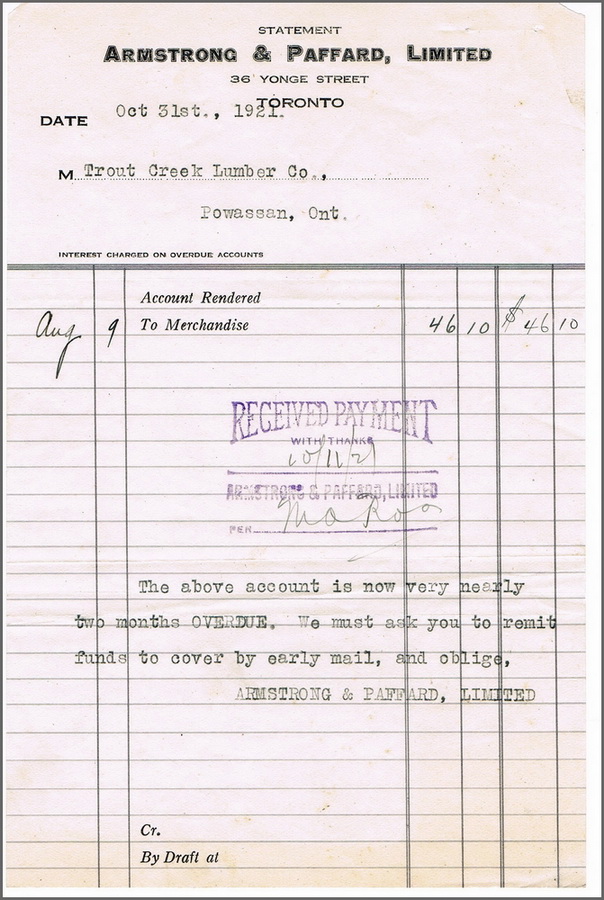 STATEMENT
ARMSTRONG & PAFFARD, LIMITED
36 YONGE STREET
TORONTO
DATE Oct 31st., 1921.
M Trout Creek Lumber Co.,
Powassan, Ont.
INTEREST CHARGED ON OVERDUE ACCOUNTS
Account Rendered
Aug 9 To Merchandise 46 10 $ 46 10
RECEIVED PAYMENT
WITH THANKS
10/11/21
ARMSTRONG & PAFFARD, LIMITED
PER
The above account is now very nearly
two months OVERDUE. We must ask you to remit
funds to cover by early mail, and oblige,
ARMSTRONG & PAFFARD, LIMITED
Cr.
By Draft at